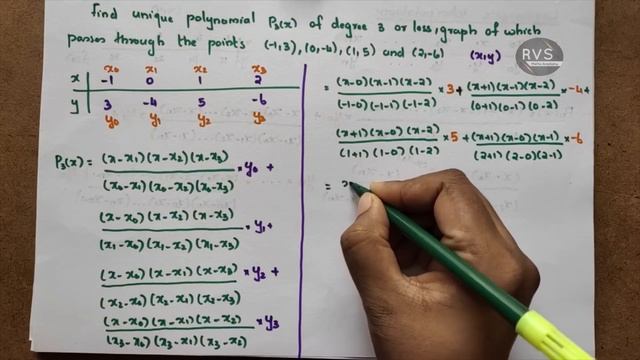 find unique polynomial P₃(x) of degree 3 or less, graph of which
passes through the points (-1,3), (0,-4), (1,5) and (2,-6) (x,y)
RVS
x₀ x₁ x₂ x₃
x -1 0 1 2
y 3 -4 5 -6
y₀ y₁ y₂ y₃
P₃(x) = (x-x₁)(x-x₂)(x-x₃) × y₀ +
(x₀-x₁)(x₀-x₂)(x₀-x₃)
(x-x₀)(x-x₂)(x-x₃) × y₁ +
(x₁-x₀)(x₁-x₂)(x₁-x₃)
(x-x₀)(x-x₁)(x-x₃) × y₂ +
(x₂-x₀)(x₂-x₁)(x₂-x₃)
(x-x₀)(x-x₁)(x-x₂) × y₃
(x₃-x₀)(x₃-x₁)(x₃-x₂)
= (x-0)(x-1)(x-2) × 3 + (x+1)(x-1)(x-2) × -4 +
(-1-0)(-1-1)(-1-2) (0+1)(0-1)(0-2)
(x+1)(x-0)(x-2) × 5 + (x+1)(x-0)(x-1) × -6
(1+1)(1-0)(1-2) (2+1)(2-0)(2-1)
=